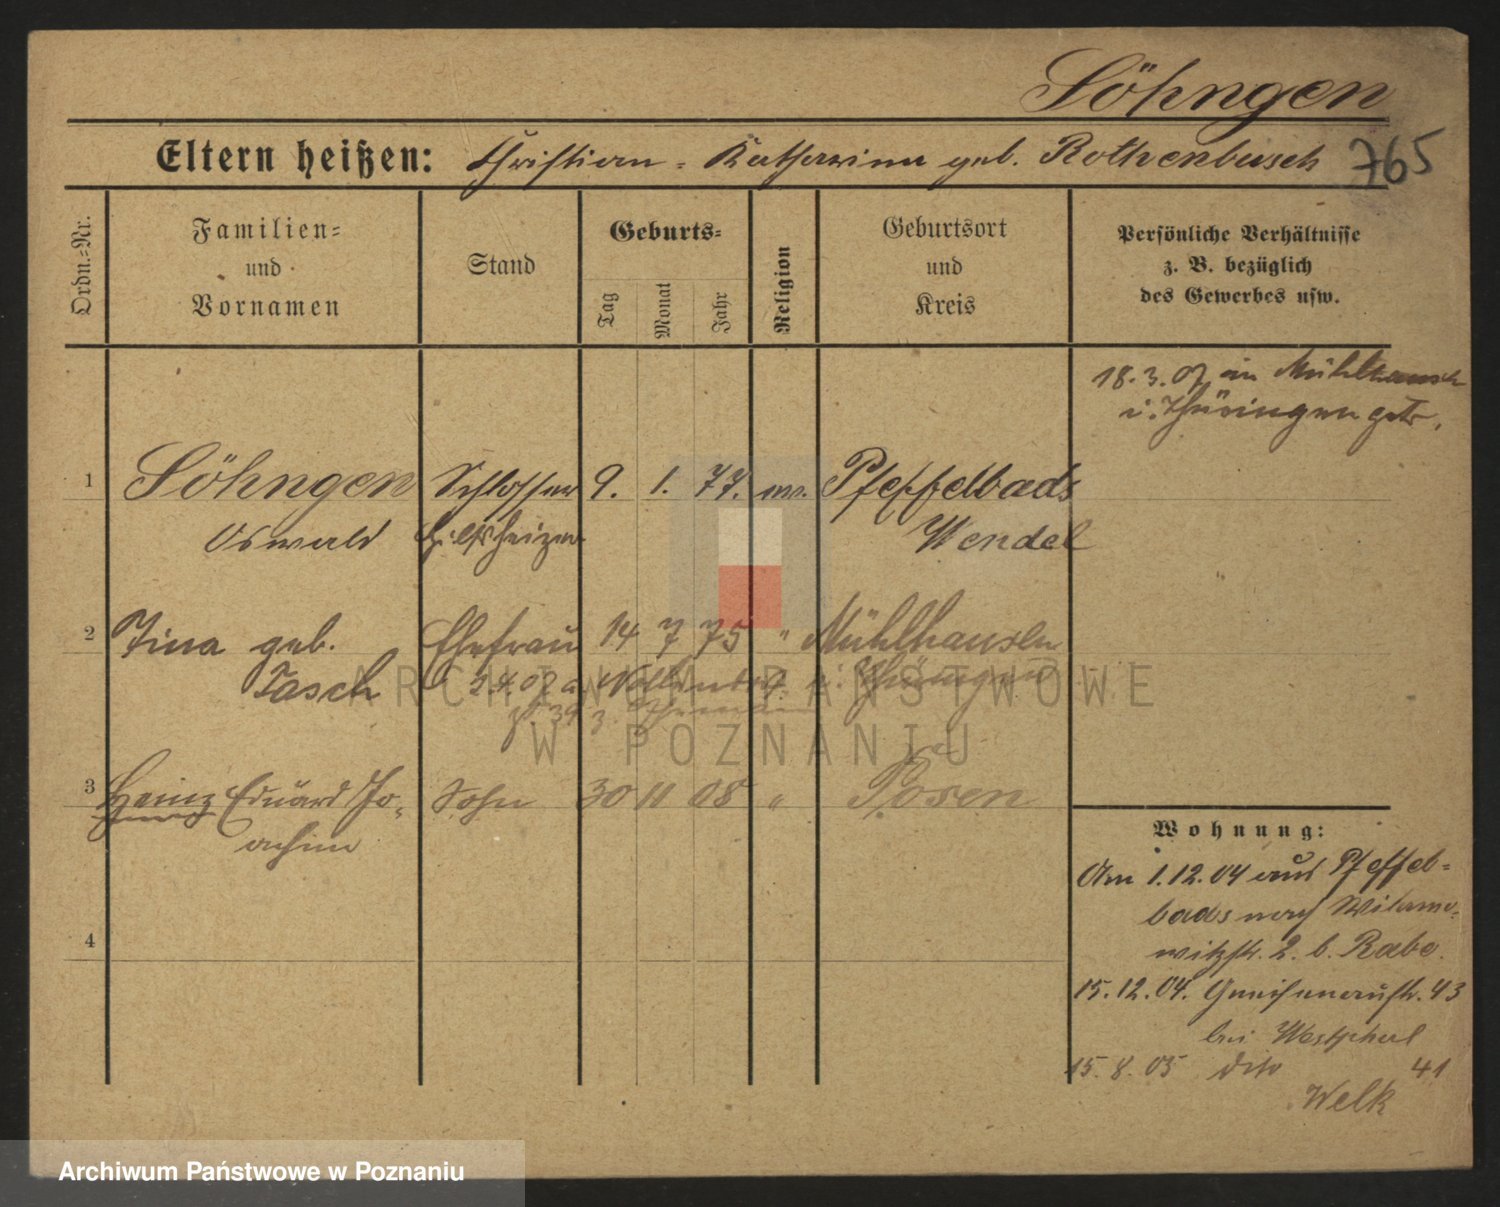 Söhngen
Eltern heißen: Christian - Katharina geb. Rothenbusch 765
Ordn.-Nr.
Familien- und Vornamen
Stand
Geburts-
Tag Monat Jahr
Religion
Geburtsort und Kreis
Persönliche Verhältnisse z. B. bezüglich des Gewerbes usw.
18.3.07 in Mühlhausen
i. Thüringen getr.
1 Söhngen Schlosser 9. 1. 77. ev. Pfeffelbads
Oswald Hilfsheizer Wendel
2 Tina geb. Ehefrau 14 7 75 " Mühlhausen
Tasch 24.07 a i. Thüringen
3 Heinz Eduard Jo- Sohn 30 11 08 " Posen
achim
4
Wohnung:
Am 1.12.04 aus Pfeffel-
bads nach Wilamo-
witzstr. 2. b. Rabe.
15.12.04. Gneisenaustr. 43
bei Westphal
15.8.05 dito 41
Welk
ARCHIWUM PAŃSTWOWE
W POZNANIU
Archiwum Państwowe w Poznaniu